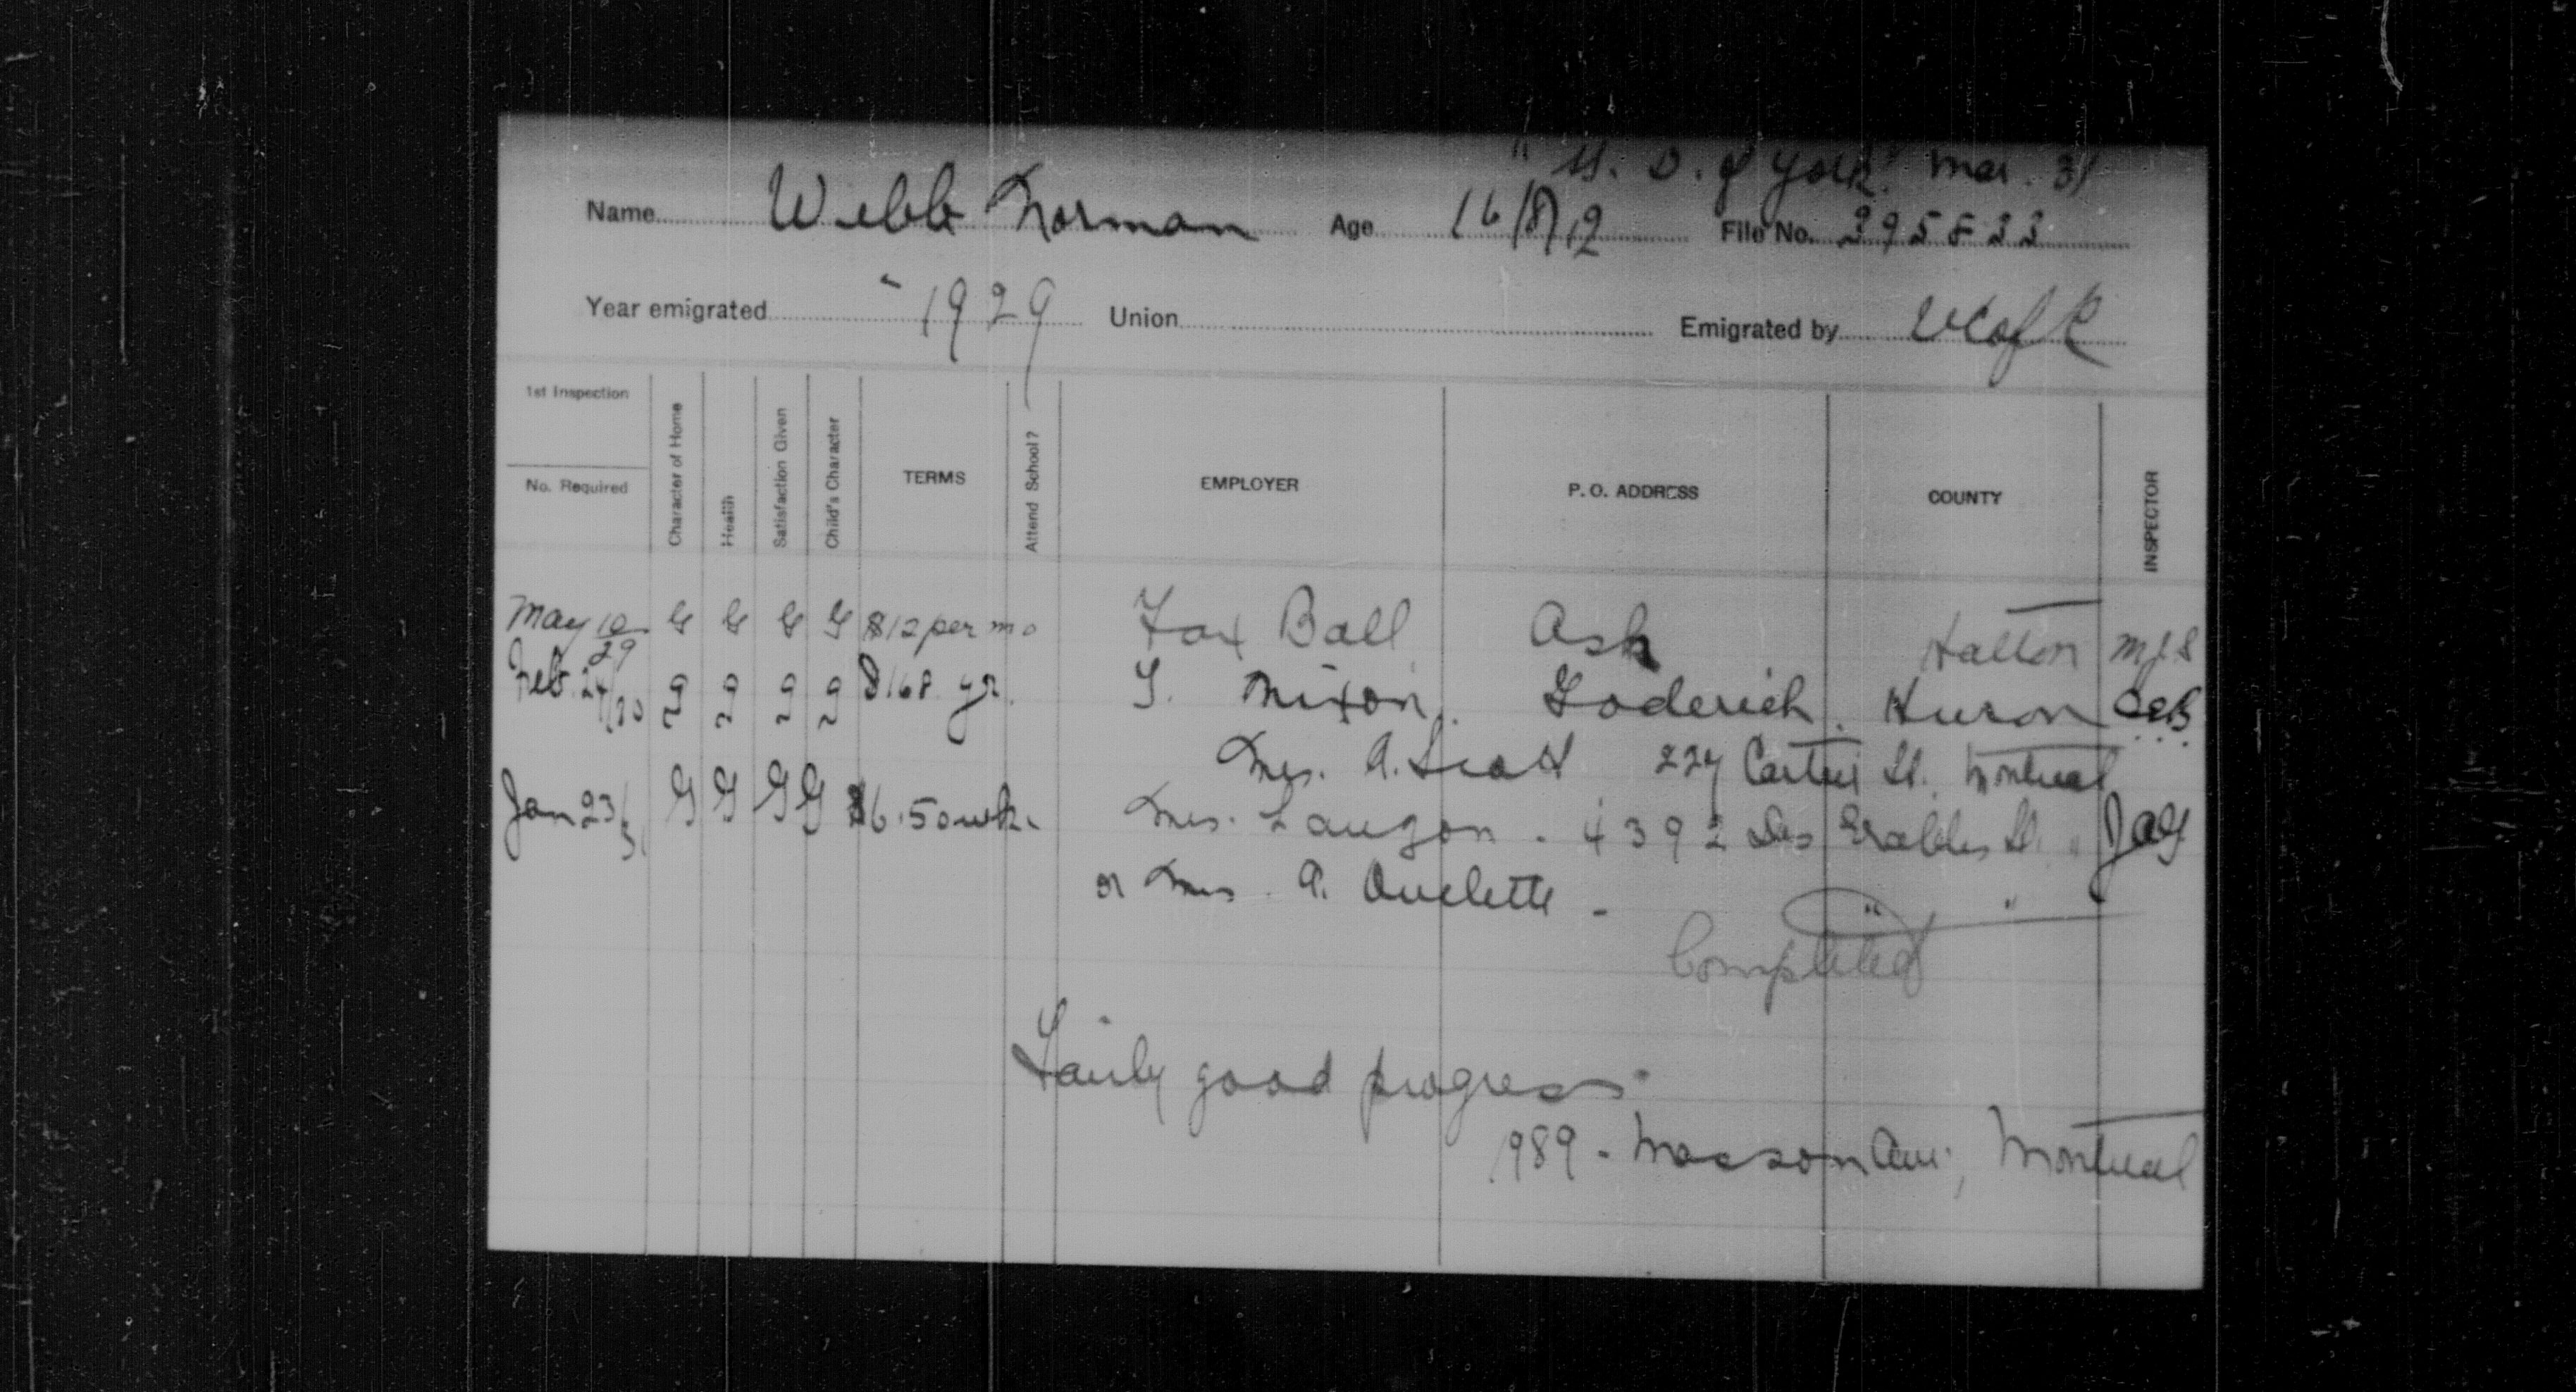 "D. of York" Mar. 31
Name Webb Norman Age 16/8/12 File No. 395833
Year emigrated 1929 Union Emigrated by
1st Inspection
No. Required
Character of Home
Health
Satisfaction Given
Child's Character
TERMS
Attend School?
EMPLOYER
P. O. ADDRESS
COUNTY
INSPECTOR
May 10/29 G G G G $12 per mo Fox Ball Ash Halton MJS
Feb. 24/30 g g g g $168 yr. T. Nixon. Goderich. Huron CEB
Mrs. A. Scott 227 Cartier St. Montreal
Jan 23/31 G G G G $6.50 wk. Mrs. Lauzon - 4392 Des Erables St. " JAG
or Mrs. A. Ouelette - " "
Completed
Fairly good progress.
1989 - Masson Ave., Montreal